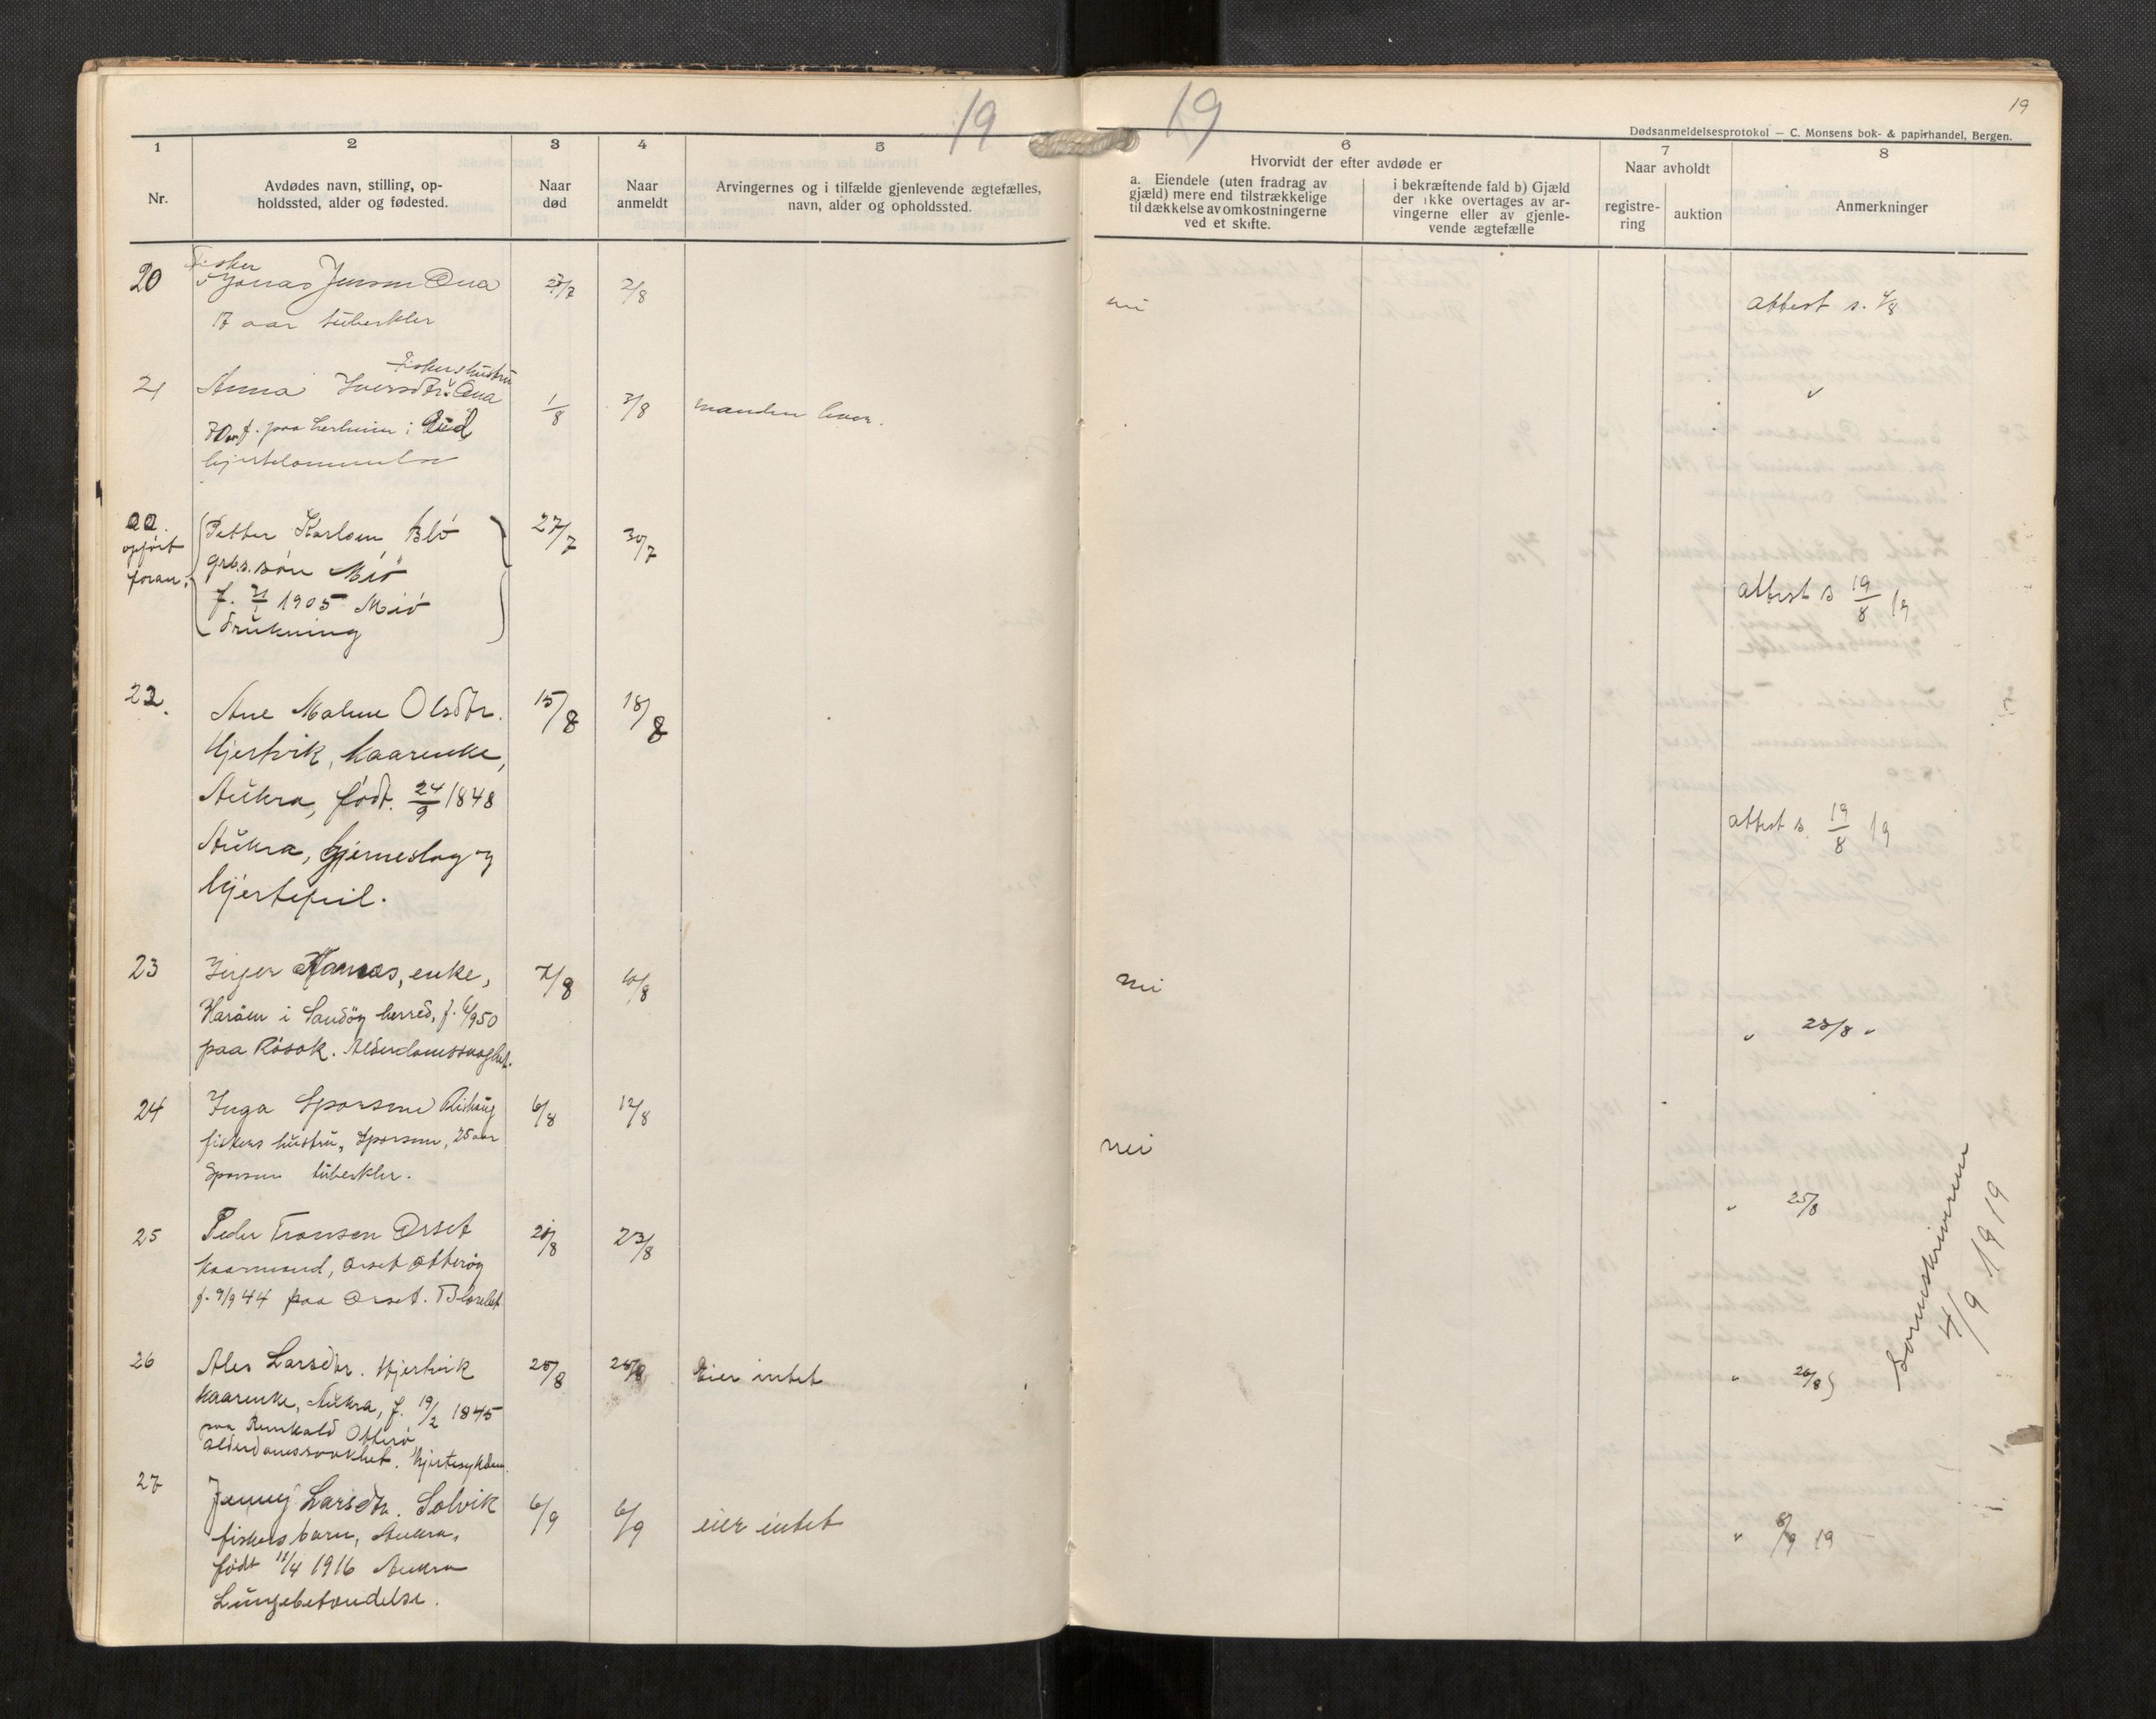 19
19
19
Dødsanmeldelsesprotokol — C. Monsens bok- & papirhandel, Bergen.
1
2
3
4
5
6
7
8
Nr.
Avdødes navn, stilling, op-
holdssted, alder og fødested.
Naar
død
Naar
anmeldt
Arvingernes og i tilfælde gjenlevende ægtefælles,
navn, alder og opholdssted.
Hvorvidt der efter avdøde er
a. Eiendele (uten fradrag av
gjæld) mere end tilstrækkelige
til dækkelse av omkostningerne
ved et skifte.
i bekræftende fald b) Gjæld
der ikke overtages av ar-
vingerne eller av gjenle-
vende ægtefælle
Naar avholdt
registre-
ring
auktion
Anmerkninger
20
Fisker
Jonas Jensen Ona
17 aar tuberkler
2/8
nei
attest s. 4/8
21
Fiskershustru
Anna Iversdtr. Ona
f. paa i Bud
1/8
manden lever.
opført
foran.
Petter Karlsen Blø
grbr. søn Miø
f. 1905 Miø
Drukning
27/7
30/7
attest s 19/8 19
22.
Ane Malene Olsdtr.
Hjertvik, kaarenke,
Aukra, født. 24/9 1848
Aukra, Hjerneslag og
hjertefeil.
15/8
18/8
attest s. 19/8 19
23
Inger enke,
Haraen i Sandöy herred, f. 
paa Røsok. Alderdomssvaghet.
7/8
nei
" 23/8 "
24
Inga Sporsem Rishaug
fiskers hustru, Sporsem, 25 aar
Sporsem tuberkler.
6/8
12/8
nei
" 25/8
25
Peder Tronsen Orset
kaarmand, Orset Otterøy
f. 9/9 44 paa Orset.
23/8
26
Ales Larsdtr. Hjertvik
kaarenke, Aukra, f. 19/2 1845
paa Otterø
alderdomssvakhet. Hjertesykdom.
25/8
Eier intet
" 26/8
Sorenskriveren
4/9 1919
27
Jenny Larsdtr. Solvik
fiskers barn, Aukra,
født 11/4 1916 Aukra
Lungebetændelse.
6/9
6/9
eier intet
" 8/9 19